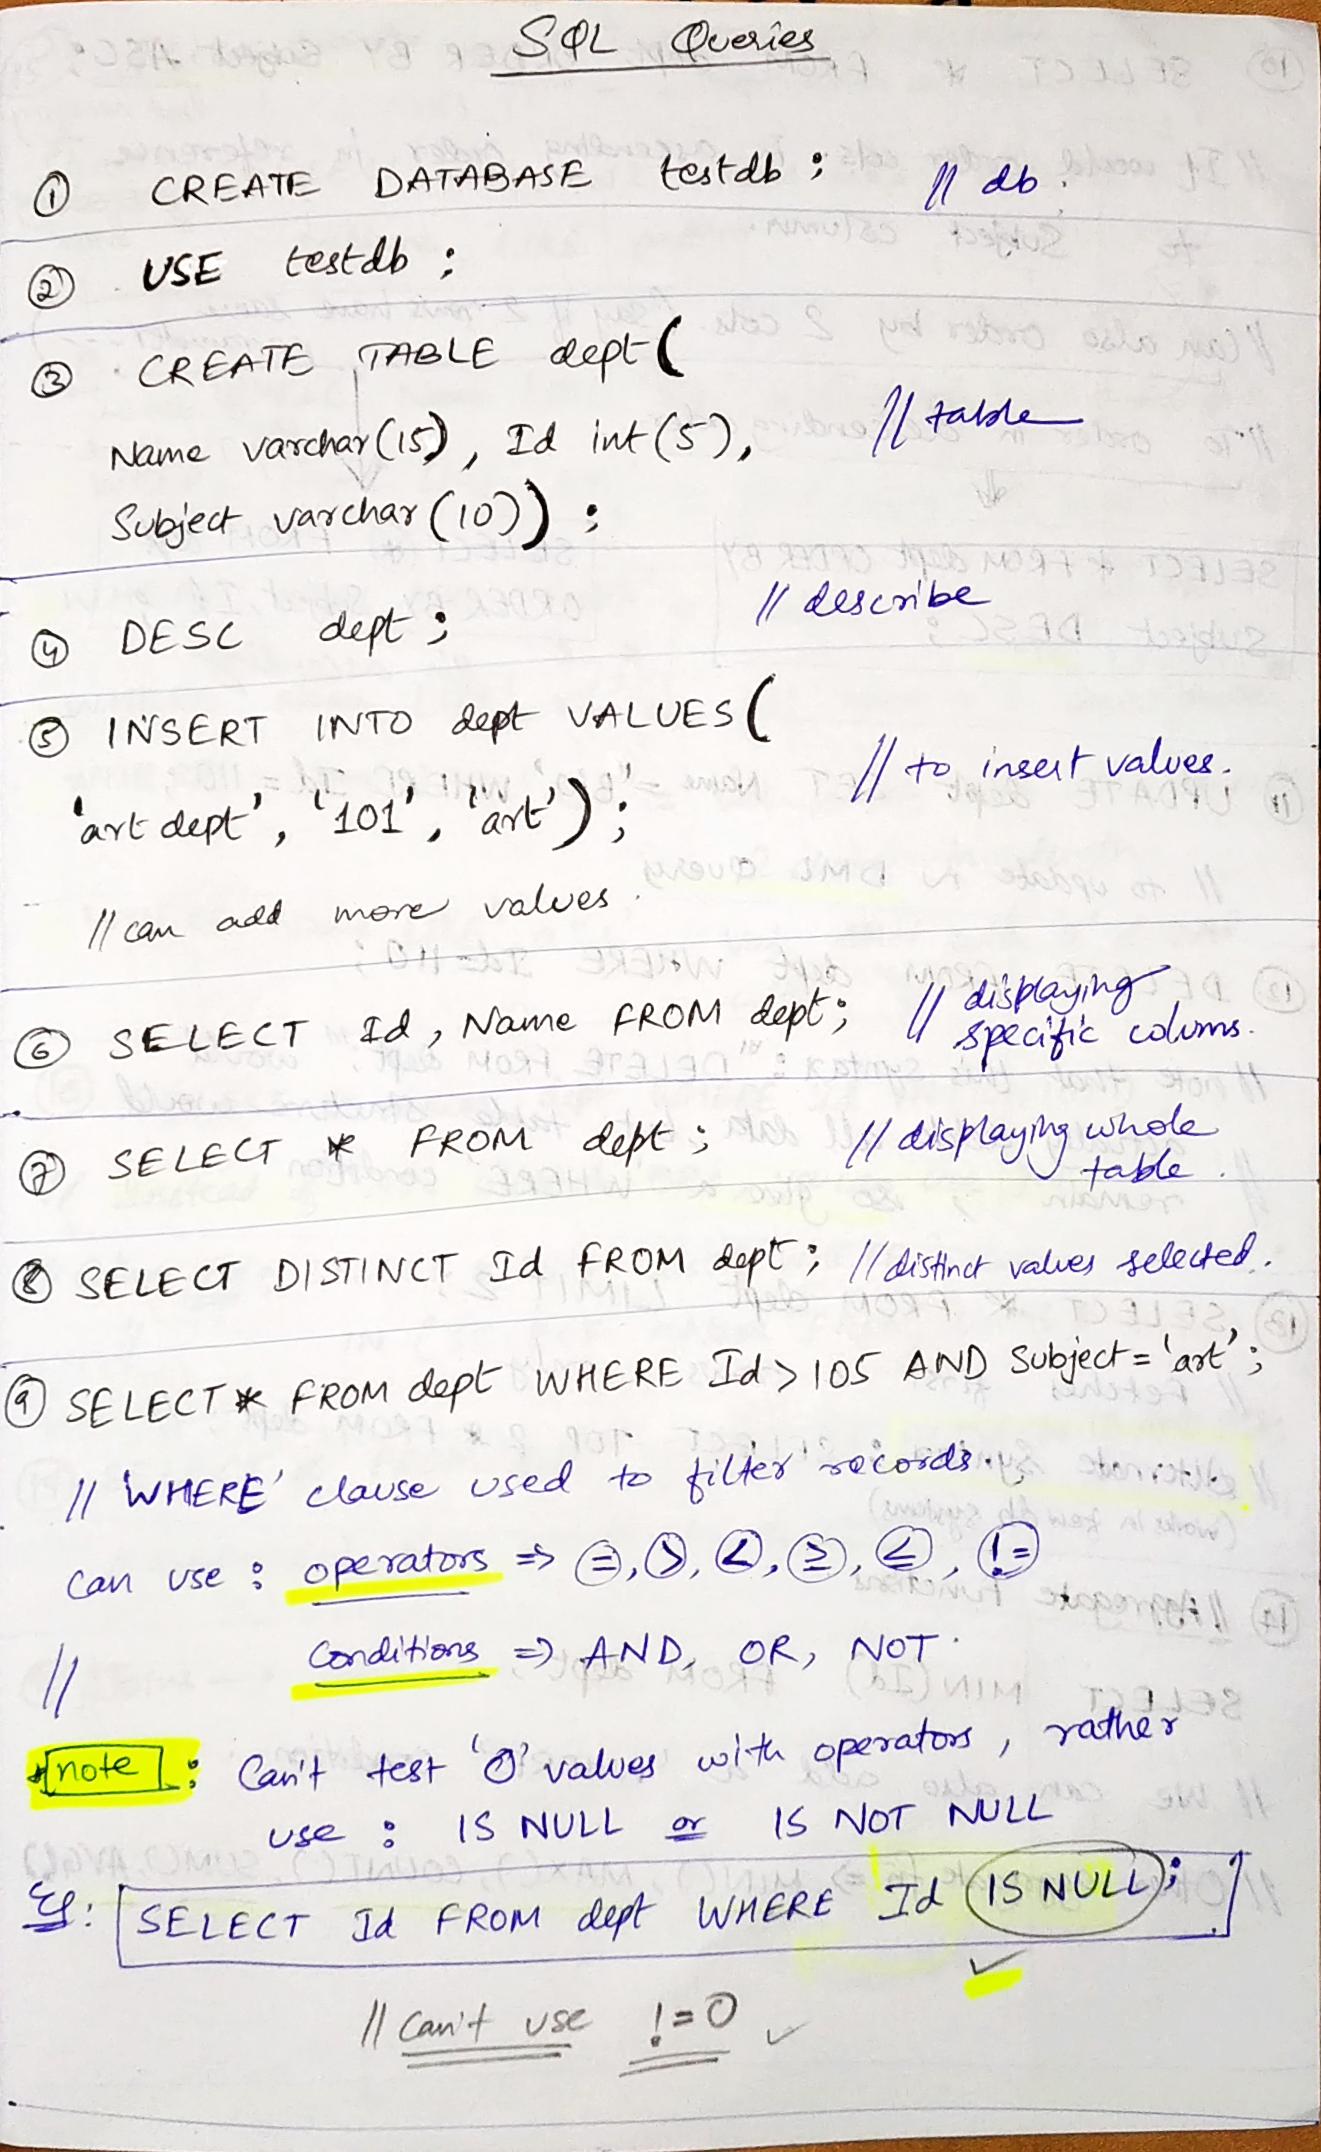 SQL Queries
① CREATE DATABASE testdb ; // db.
② USE testdb ;
③ CREATE TABLE dept (
Name varchar(15), Id int(5), // table
Subject varchar(10)) ;
④ DESC dept ; // describe
⑤ INSERT INTO dept VALUES(
'art dept', '101', 'art') ; // to insert values.
// can add more values.
⑥ SELECT Id, Name FROM dept; // displaying
specific colums.
⑦ SELECT * FROM dept ; // displaying whole
table.
⑧ SELECT DISTINCT Id FROM dept ; // distinct values selected.
⑨ SELECT * FROM dept WHERE Id > 105 AND Subject = 'art' ;
// 'WHERE' clause used to filter records.
can use : operators ⇒ =, >, <, ≥, ≤, !=
// Conditions ⇒ AND, OR, NOT.
* note : Can't test 'O' values with operators, rather
use : IS NULL or IS NOT NULL
Eg: SELECT Id FROM dept WHERE Id IS NULL ;
// Can't use != O